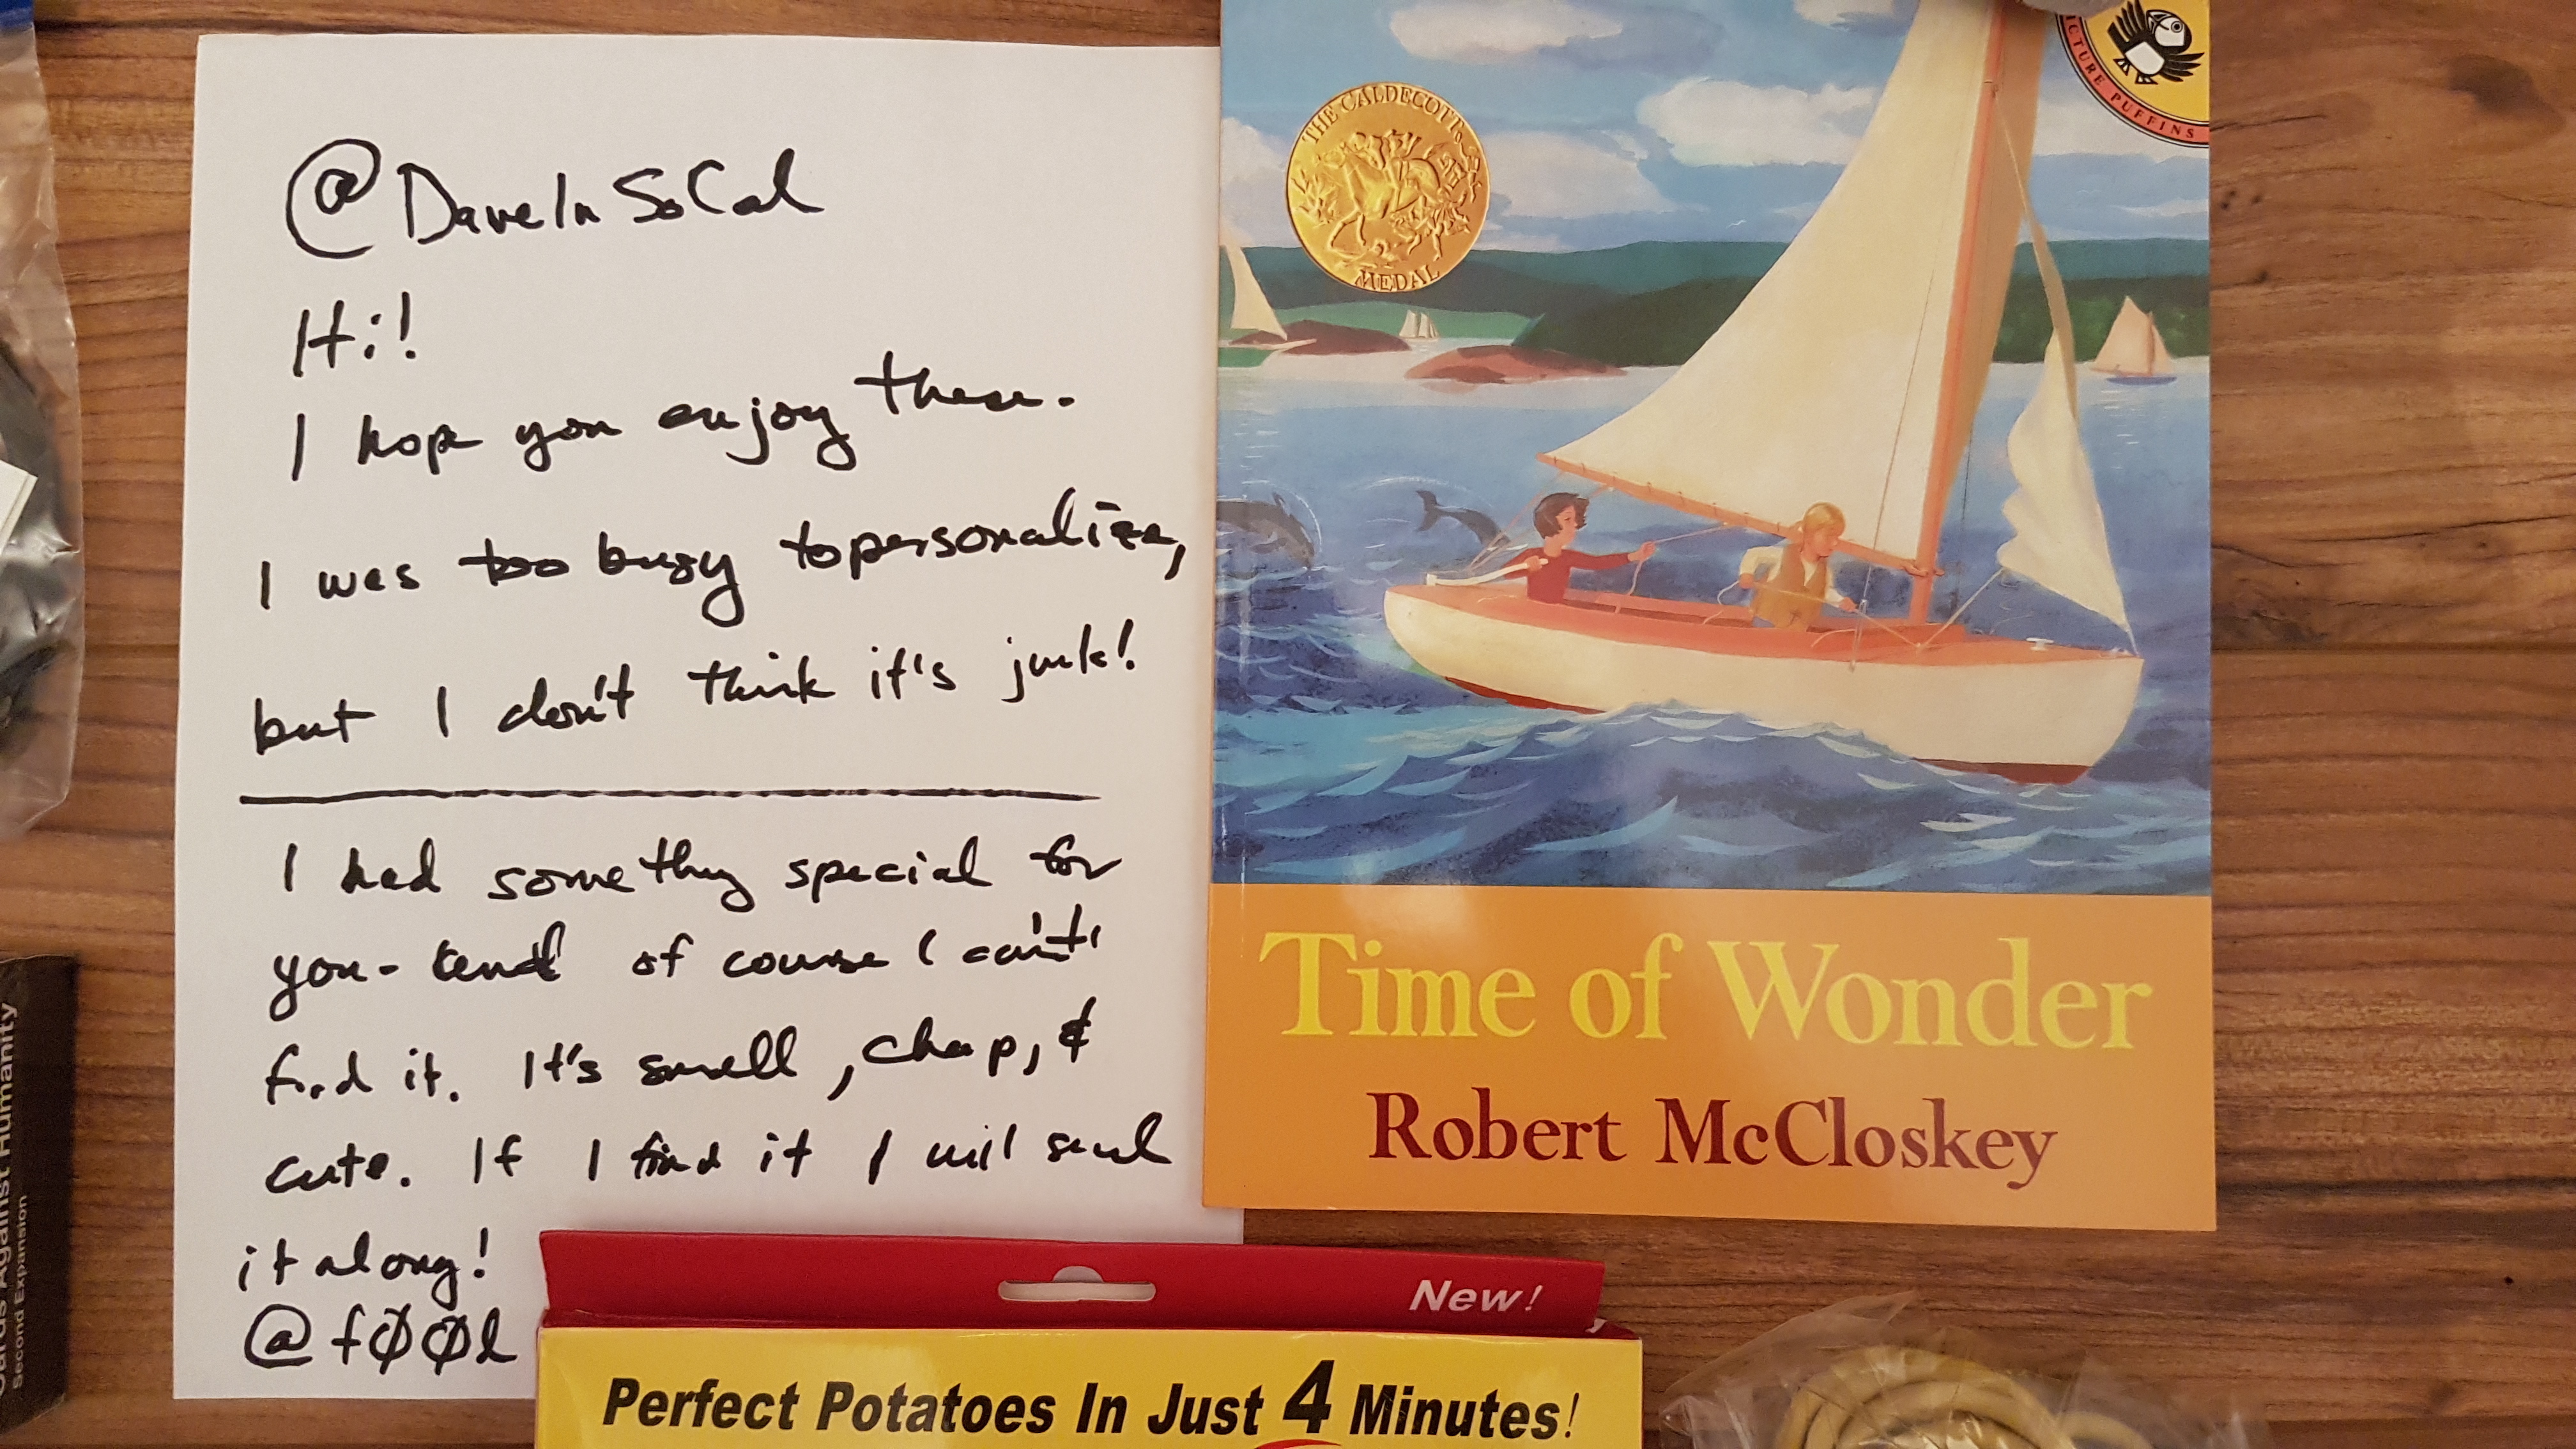 @DaveInSoCal
Hi!
I hope you enjoy these.
I was too busy to personalize,
but I don't think it's junk!
I had something special for
you - and of course I can't
find it. It's small, cheap, &
cute. If I find it I will send
it along!
@fØØl
THE CALDECOTT
MEDAL
PICTURE PUFFINS
Time of Wonder
Robert McCloskey
New!
Perfect Potatoes In Just 4 Minutes!
Cards Against Humanity
Second Expansion